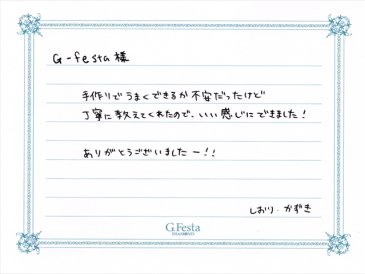 G-festa 様
手作りでうまくできるか不安だったけど
丁寧に教えてくれたので、いい感じにできました!
ありがとうございましたー!!
しおり・かずき
G.Festa